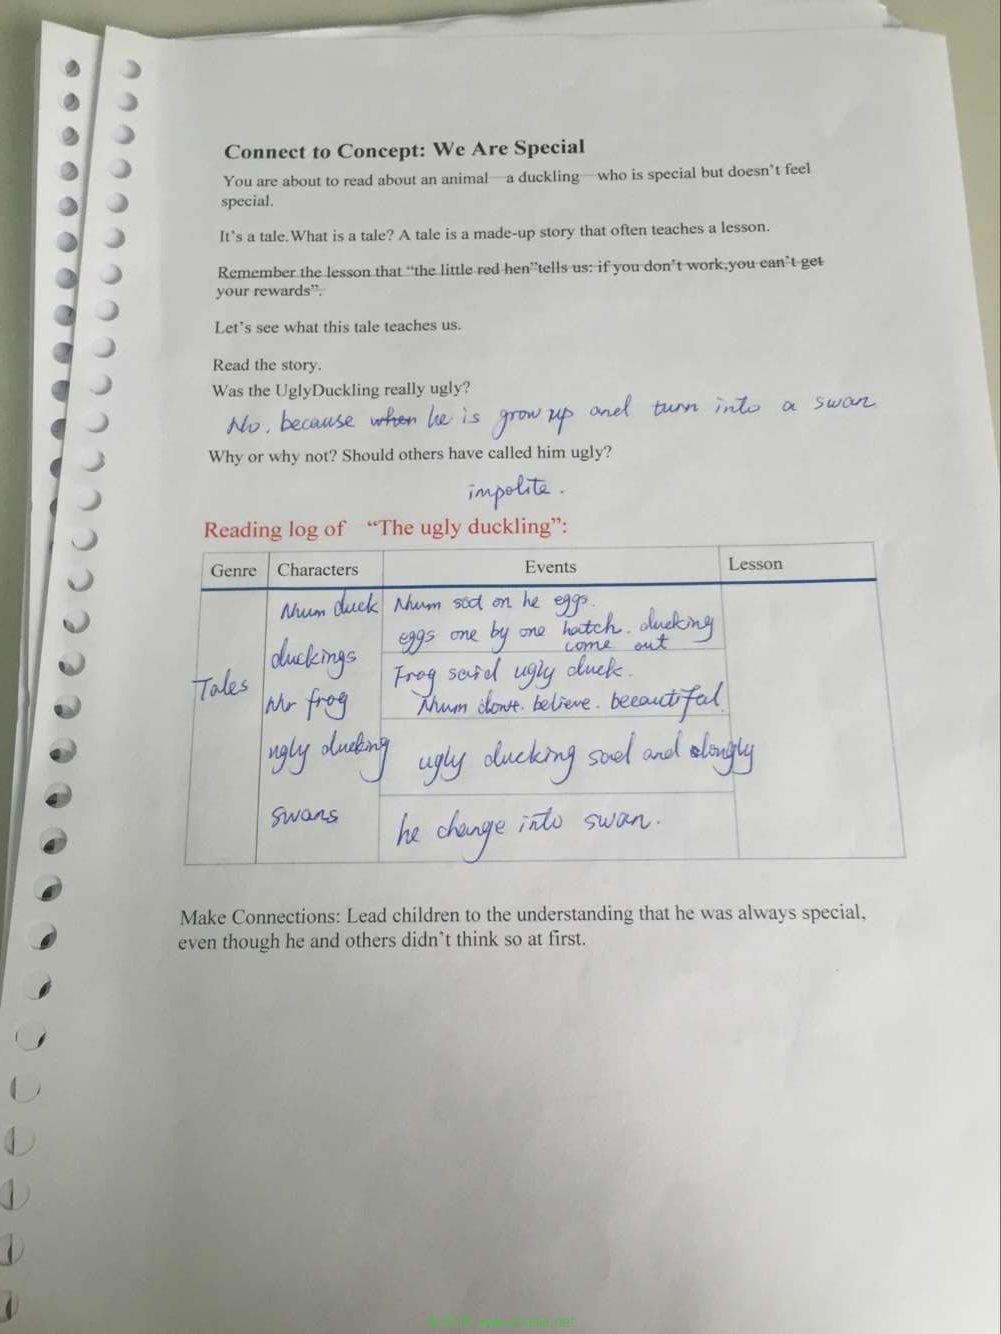 Connect to Concept: We Are Special
You are about to read about an animal—a duckling—who is special but doesn't feel
special.
It's a tale.What is a tale? A tale is a made-up story that often teaches a lesson.
Remember the lesson that “the little red hen”tells us: if you don't work,you can't get
your rewards”.
Let's see what this tale teaches us.
Read the story.
Was the UglyDuckling really ugly?
No, because when he is grow up and turn into a swan
Why or why not? Should others have called him ugly?
impolite.
Reading log of “The ugly duckling”:
Genre Characters Events Lesson
Mum duck Mum sat on he eggs.
eggs one by one hatch. ducking
come out
duckings
Frog said ugly duck.
Tales
Mr frog
Mum dont. believe. beeautifal
ugly ducking
ugly ducking sad and
swans
he change into swan.
Make Connections: Lead children to the understanding that he was always special,
even though he and others didn't think so at first.